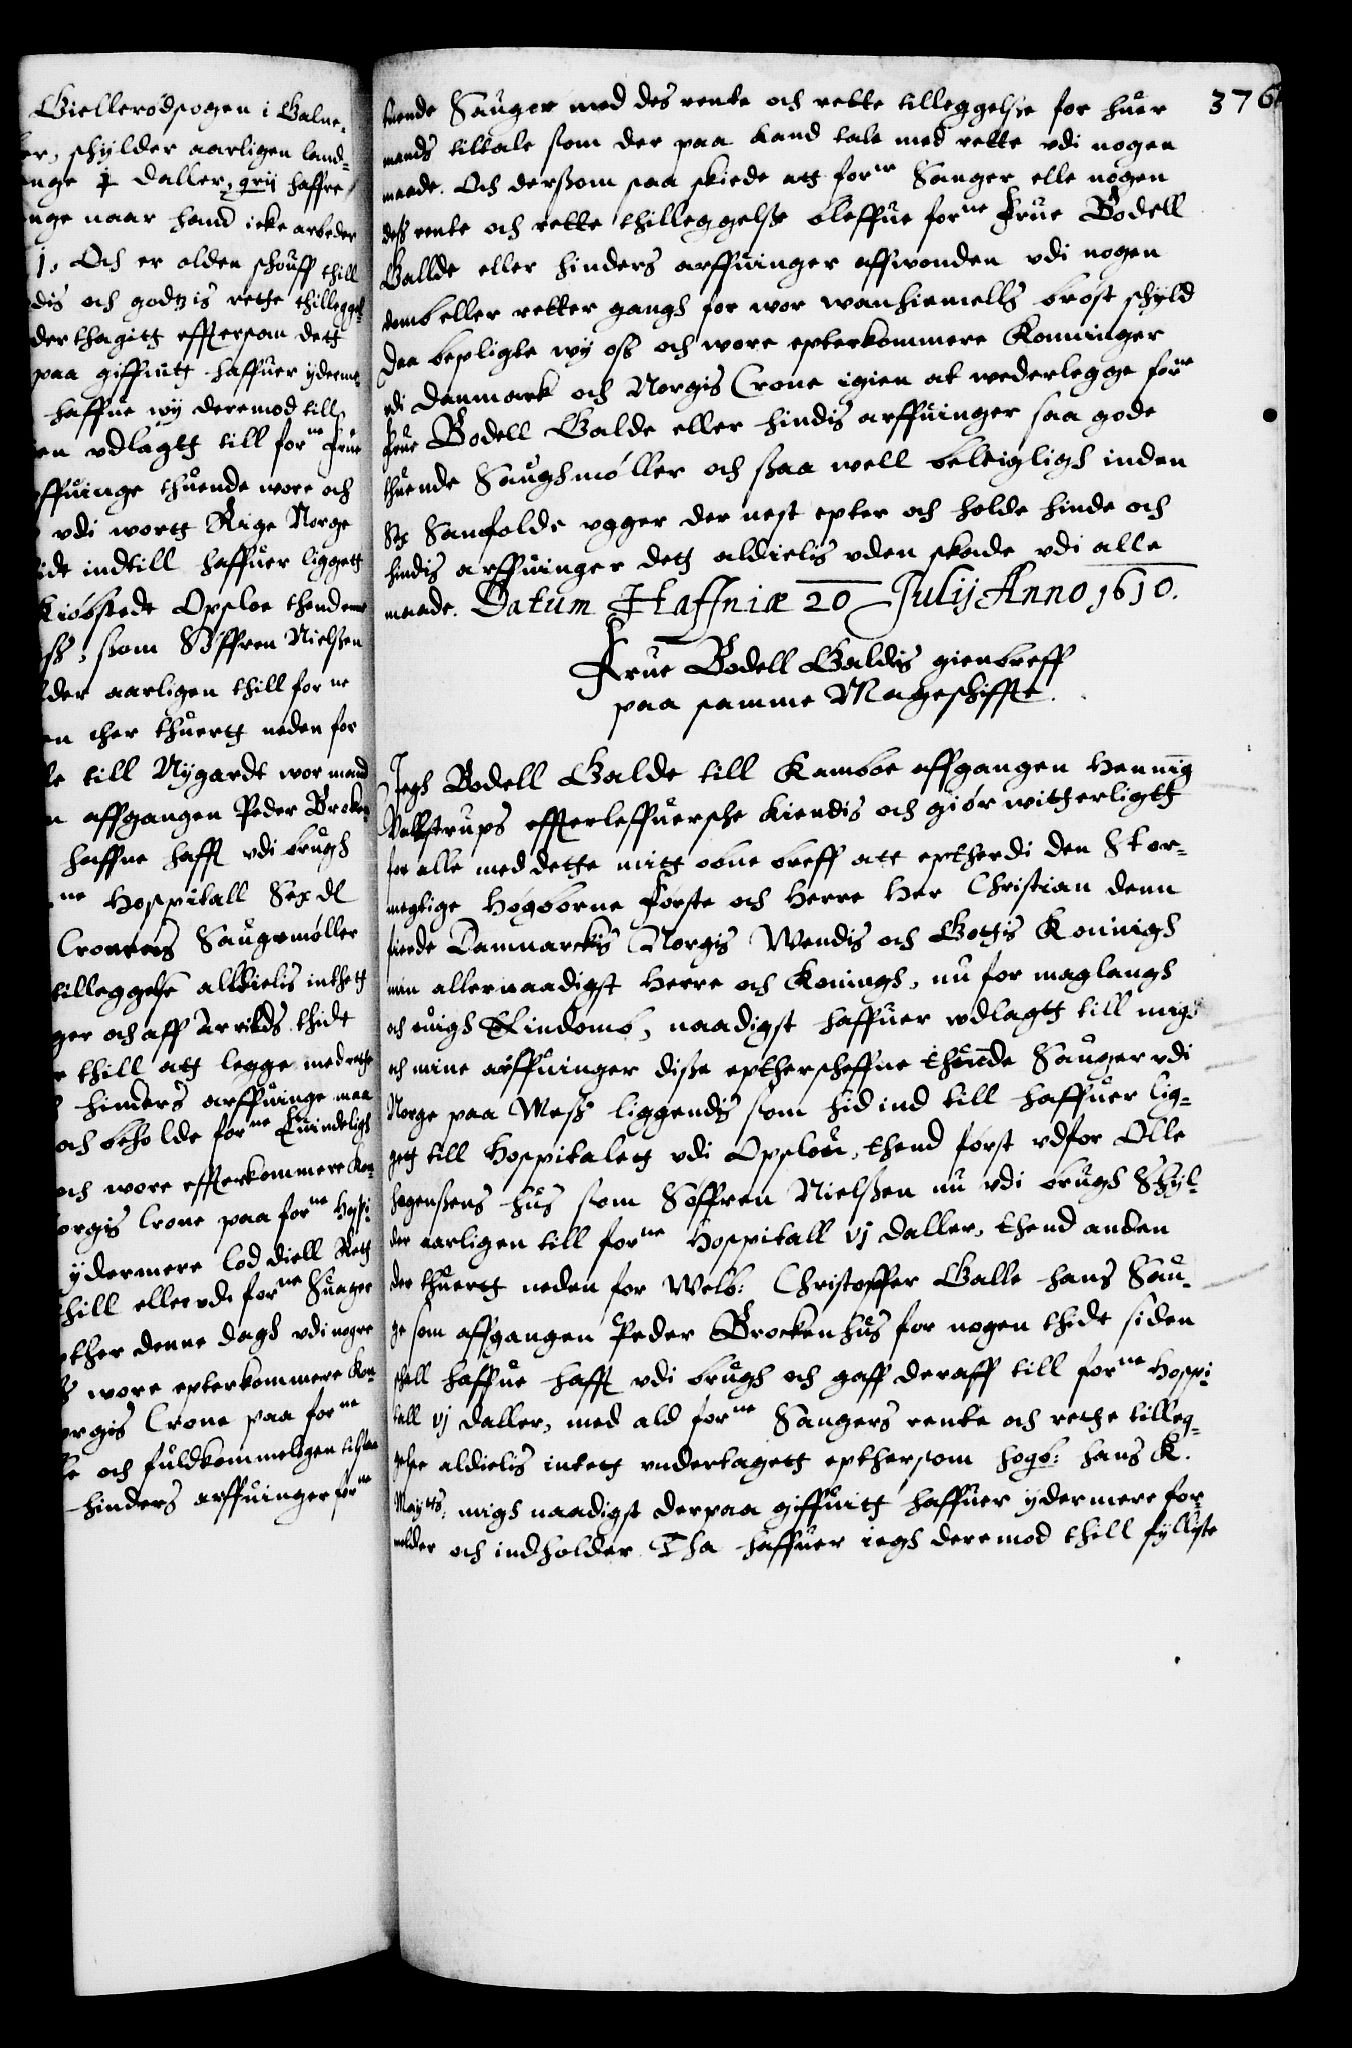 Giellerødsogen i Galne-
er, schylder aarligen land-
inge 1 daller, grij haffre
nge naar hand icke arbeder
1. Och er olden schouff thill
dis och godtzis rethe thillegge-
der thagitt effttersom dett
paa giffuitt haffuer ydermer
haffue wy deremod till
en vdlagtt till forne frue
ffuinge thuende wore och
vdi wortt Rige Norge
idt indtill haffuer liggett
Kiøbstede Opsloe thend ene
ss, som Søffren Nielssen
lder aarligen thill forne
en ther thuertt neden for
le till Nygardt wor mand
n affgangen Peder Brocken-
haffue hafft vdi brugh
ne Hospitall Sex dl
Cronens Saugemøller
tilleggelse alldielis inthett
ger och aff Arrilds thide
thill att legge med rethe
hinders arffuinge maa
och beholde forne Euindeligh
och wore effterkommere Kon-
orgis Crone paa forne Hospi-
ydermere lod diell Rett
thill eller vdi forne Sauger
pther denne dagh vdi nogre
ß wore epterkommere Kon-
orgis Crone paa forne
se och fuldkommeligen tilstaa
hinders arffuinger forne
376
tuende Sauger med des rente och rette tilleggelse for huer
mands tiltale som der paa kand tale med rette vdi nogen
maade. Och dersom saa skiede att forne Sauger elle nogen
dess rente och rette thilleggelsse bleffue forne Frue Bodell
Gallde eller hinders arffuinger affwonden vdi nogen
domb eller retter gangh for wor wanhiemells brøst schyld
Daa bepligte wy oss och wore epterkommere Konninger
vdi Danmark och Norgis Crone igien at wederlegge forne
frue Bodell Galde eller hindis arffuinger saa gode
thuende Saughmøller och ssaa well beleigligh inden
Sex Samfolde vgger der nest epter och holde hinde och
hindis arffuinger dett aldielis vden skade vdi alle
maade. Datum Haffniæ 20 Julij Anno 1610.
Frue Bodell Galdis gienbreff
paa samme Mageschiffte.
Jegh Bodell Galde till Kamboe affgangen Hennig
Valkstrups effterleffuersche kiendis och giør witherligtt
for alle med dette mitt obne breff att eptherdi den Stor-
megtige Høgborne Første och Herre Her Christian denn
fierde Danmarckis Norgis Wendis och Gottis Koningh
min allernaadigst Herre och Koningh, nu for maglaugh
och euigh Eindomb, naadigst haffuer wdlagtt till migh
och mine arffuinger disse eptherscheffne thuende Sauger vdi
Norge paa Mess liggendis som hid ind till haffuer lig-
gett till Hospitalett vdi Opsloe, thend først vdfor Olle
hagenssens hus som Søffren Nielssen nu vdi brugh Skyl-
der aarligen till forne Hospitall vj daller, thend anden
der thuertt neden for Welb: Christoffer Galle hans Sau-
ge som affgangen Peder Brockenhus for nogen thidt siden
schall haffue hafft vdi brugh och gaff deraff till forne Hospi-
tall vj daller, med ald forne Saugers rente och rethe tilleg-
gelse aldielis intett vndertagett epthersom høgb: hans K.
Maytts: migh naadigst derpaa giffuitt haffuer ydermere for-
melder och indholder Tha haffuer iegh deremod thill fyllyste